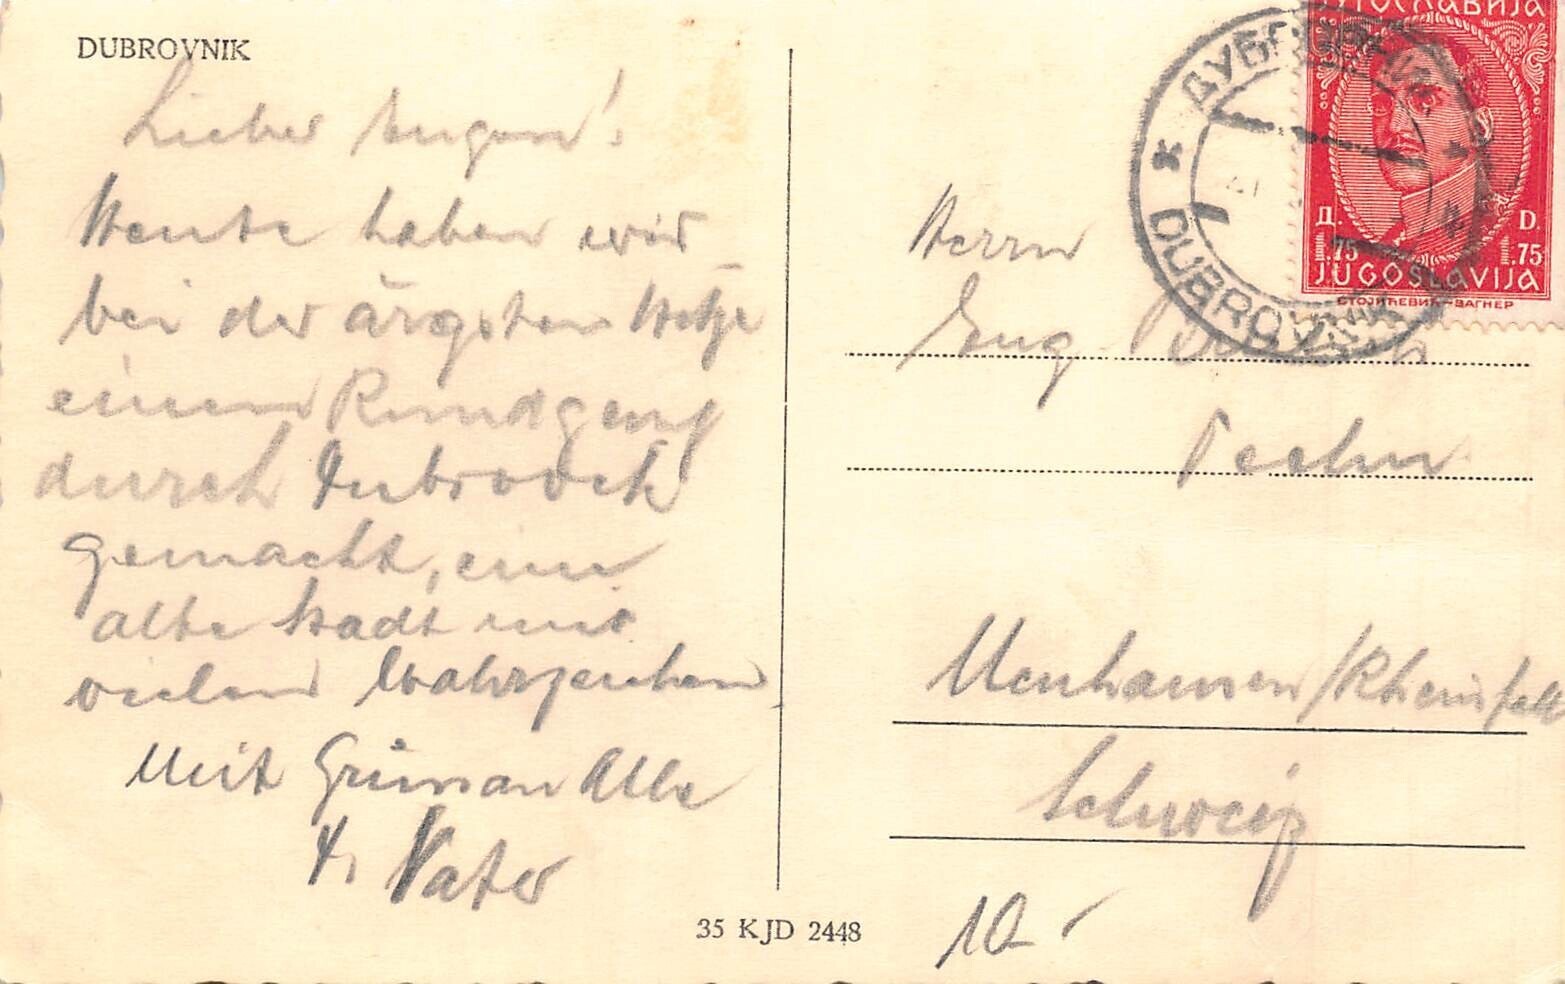 DUBROVNIK
Lieber Eugen!
Heute haben wir
bei der ärgsten Hetze
einen Rundgang
durch Dubrovnik
gemacht, eine
alte Stadt mit
vielen Wahrzeichen
Mit Grüssen Alle
Vater
35 KJD 2448
ЈУГОСЛАВИЈА
Д. D.
1.75 1.75
JUGOSLAVIJA
СТОЈИЋЕВИЋ-ВАГНЕР
ДУБРОВНИК
DUBROVNIK
Herrn
Eug.
Techn
Neuhausen/Rheinfall
Schweiz
10.-